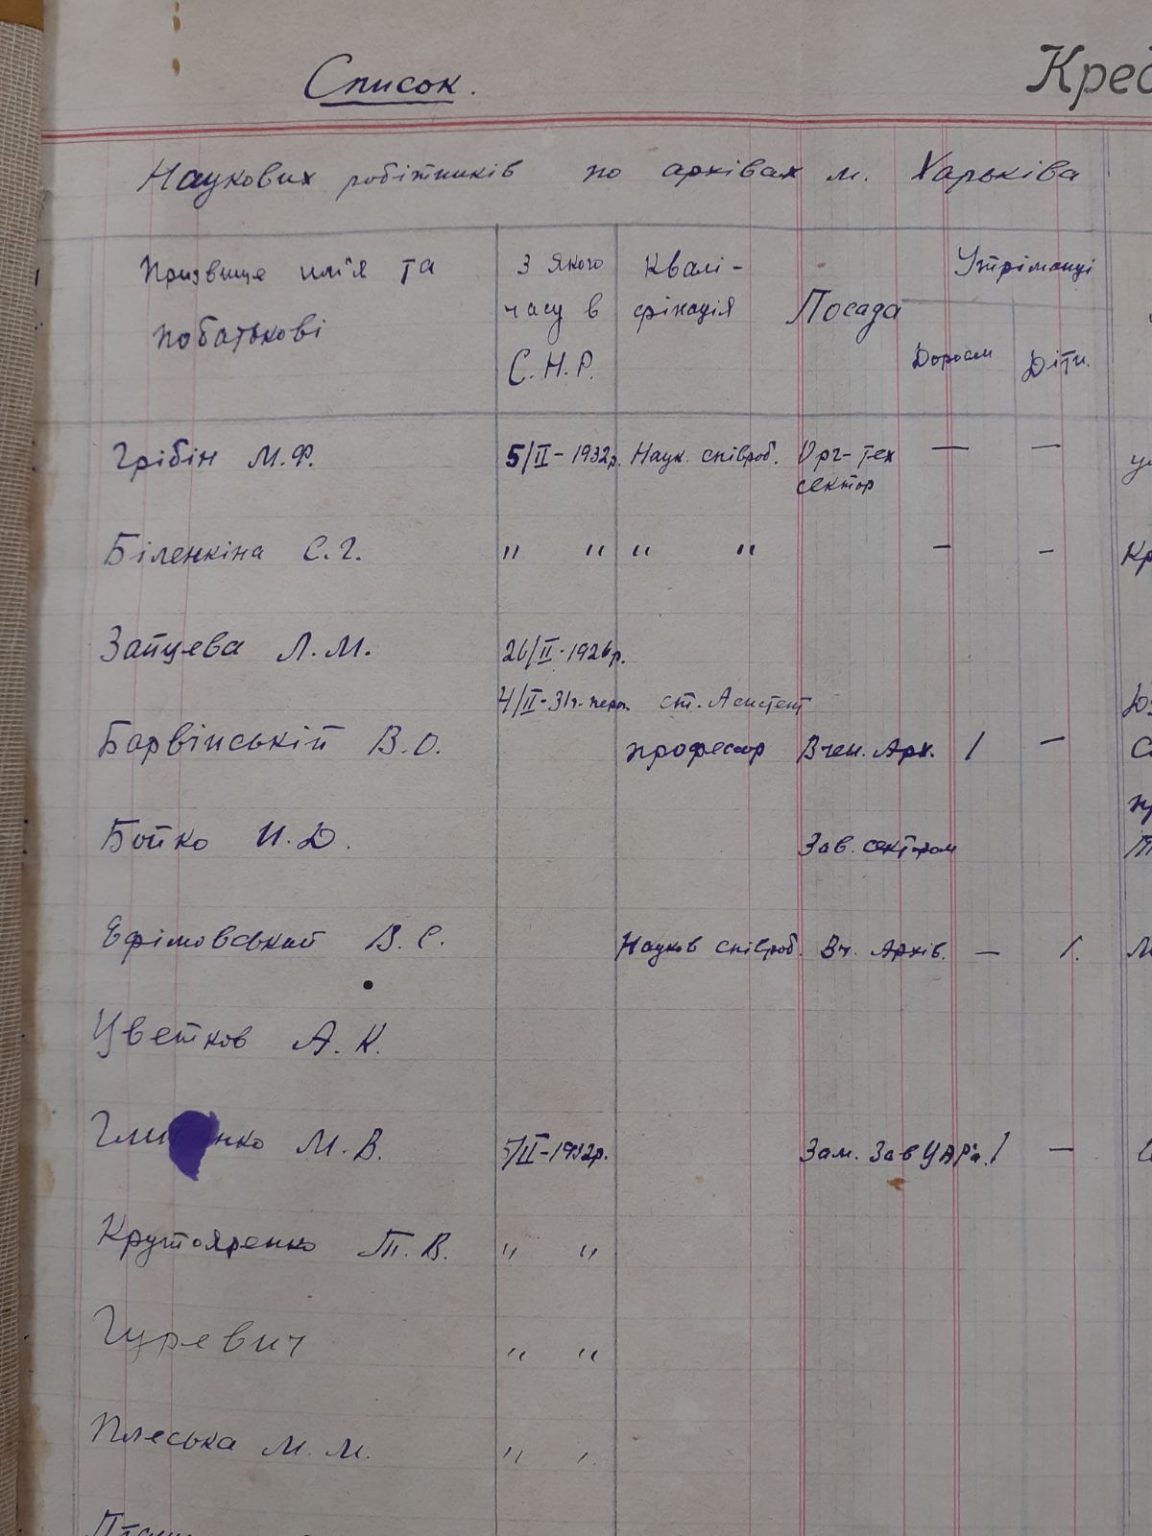 Список. Кред
Наукових робітників по архівах м. Харьківа
Призвище им'я та
побатькові
З якого
часу в
С.Н.Р.
Квалі-
фікація
Посада
Утріманці
Доросл
Діти.
Грібін М.Ф. 5/II-1932р. Наук. співроб. Орг-тех — —
сектор
Біленкіна С.Г. " " " " — —
Зайцева Л.М. 26/II-1926р.
4/II-31р. ст. Асистент
Барвінській В.О. професор Вчен. Арх. 1 —
Бойко И.Д. Зав. сектором
Ефімовський В.С. Науков співроб. Вч. Архів. — 1.
Цветков А.К.
нко М.В. 5/II-1932р. Зам. Зав УАР'а. 1 —
Крутояренко Т.В. " "
Гуревич " "
Плеська М.М. " "